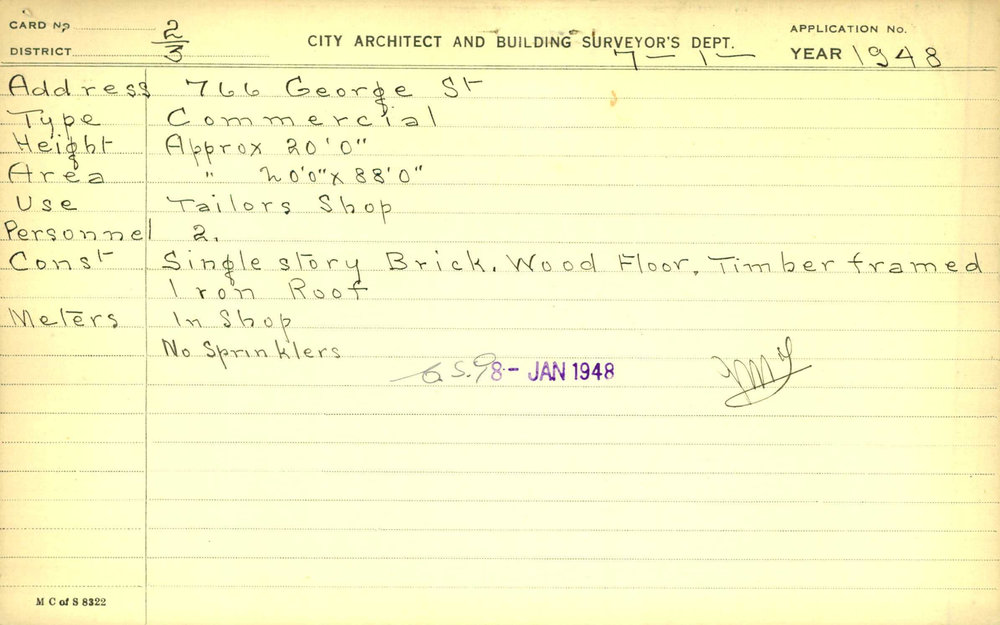 CARD No
DISTRICT
2/3
CITY ARCHITECT AND BUILDING SURVEYOR'S DEPT.
7 – 1 –
APPLICATION No.
YEAR 1948
Address 766 George St
Type Commercial
Height Approx 20'0"
Area " 20'0" x 88'0"
Use Tailors Shop
Personnel 2.
Const Single story Brick. Wood Floor, Timber framed
Iron Roof
Meters In Shop
No Sprinklers
8 - JAN 1948
M C of S 8322